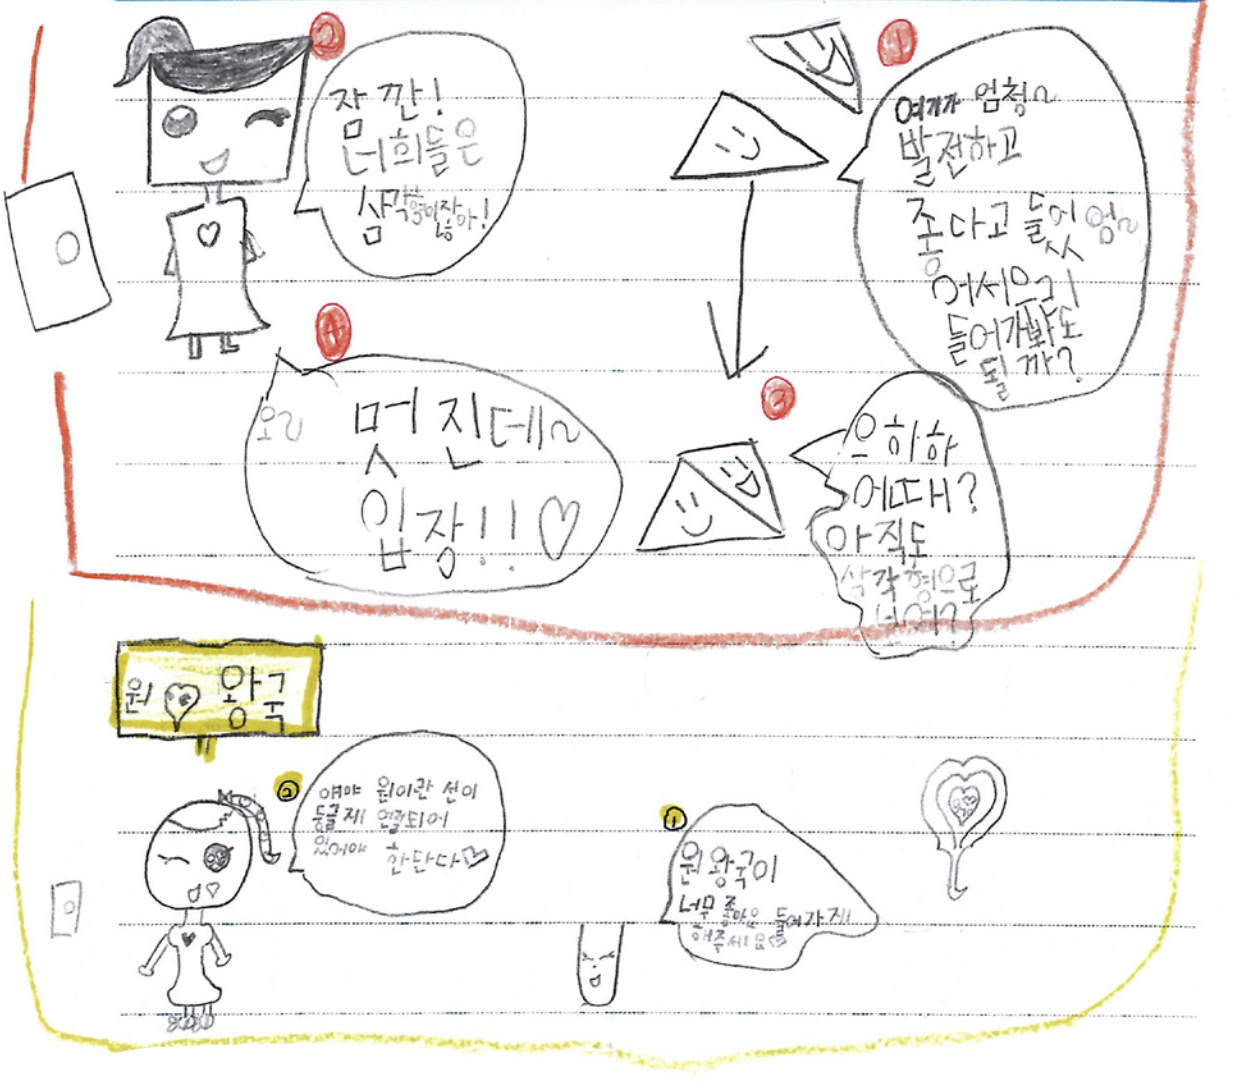 ①
여기가 엄청~
발전하고
좋다고 들었엉~
어서우리
들어가봐도
될까?
②
잠깐!
너희들은
삼각형이잖아!
③
으하하
어때?
아직도
삼각형으로
보여?
④
오~ 멋진데~
입장!!♡
원♡왕국
①
원왕국이
너무 좋아요 들어가게
해주세요♡
②
얘야 원이란 선이
둥글게 연결되어
있어야 한단다♡